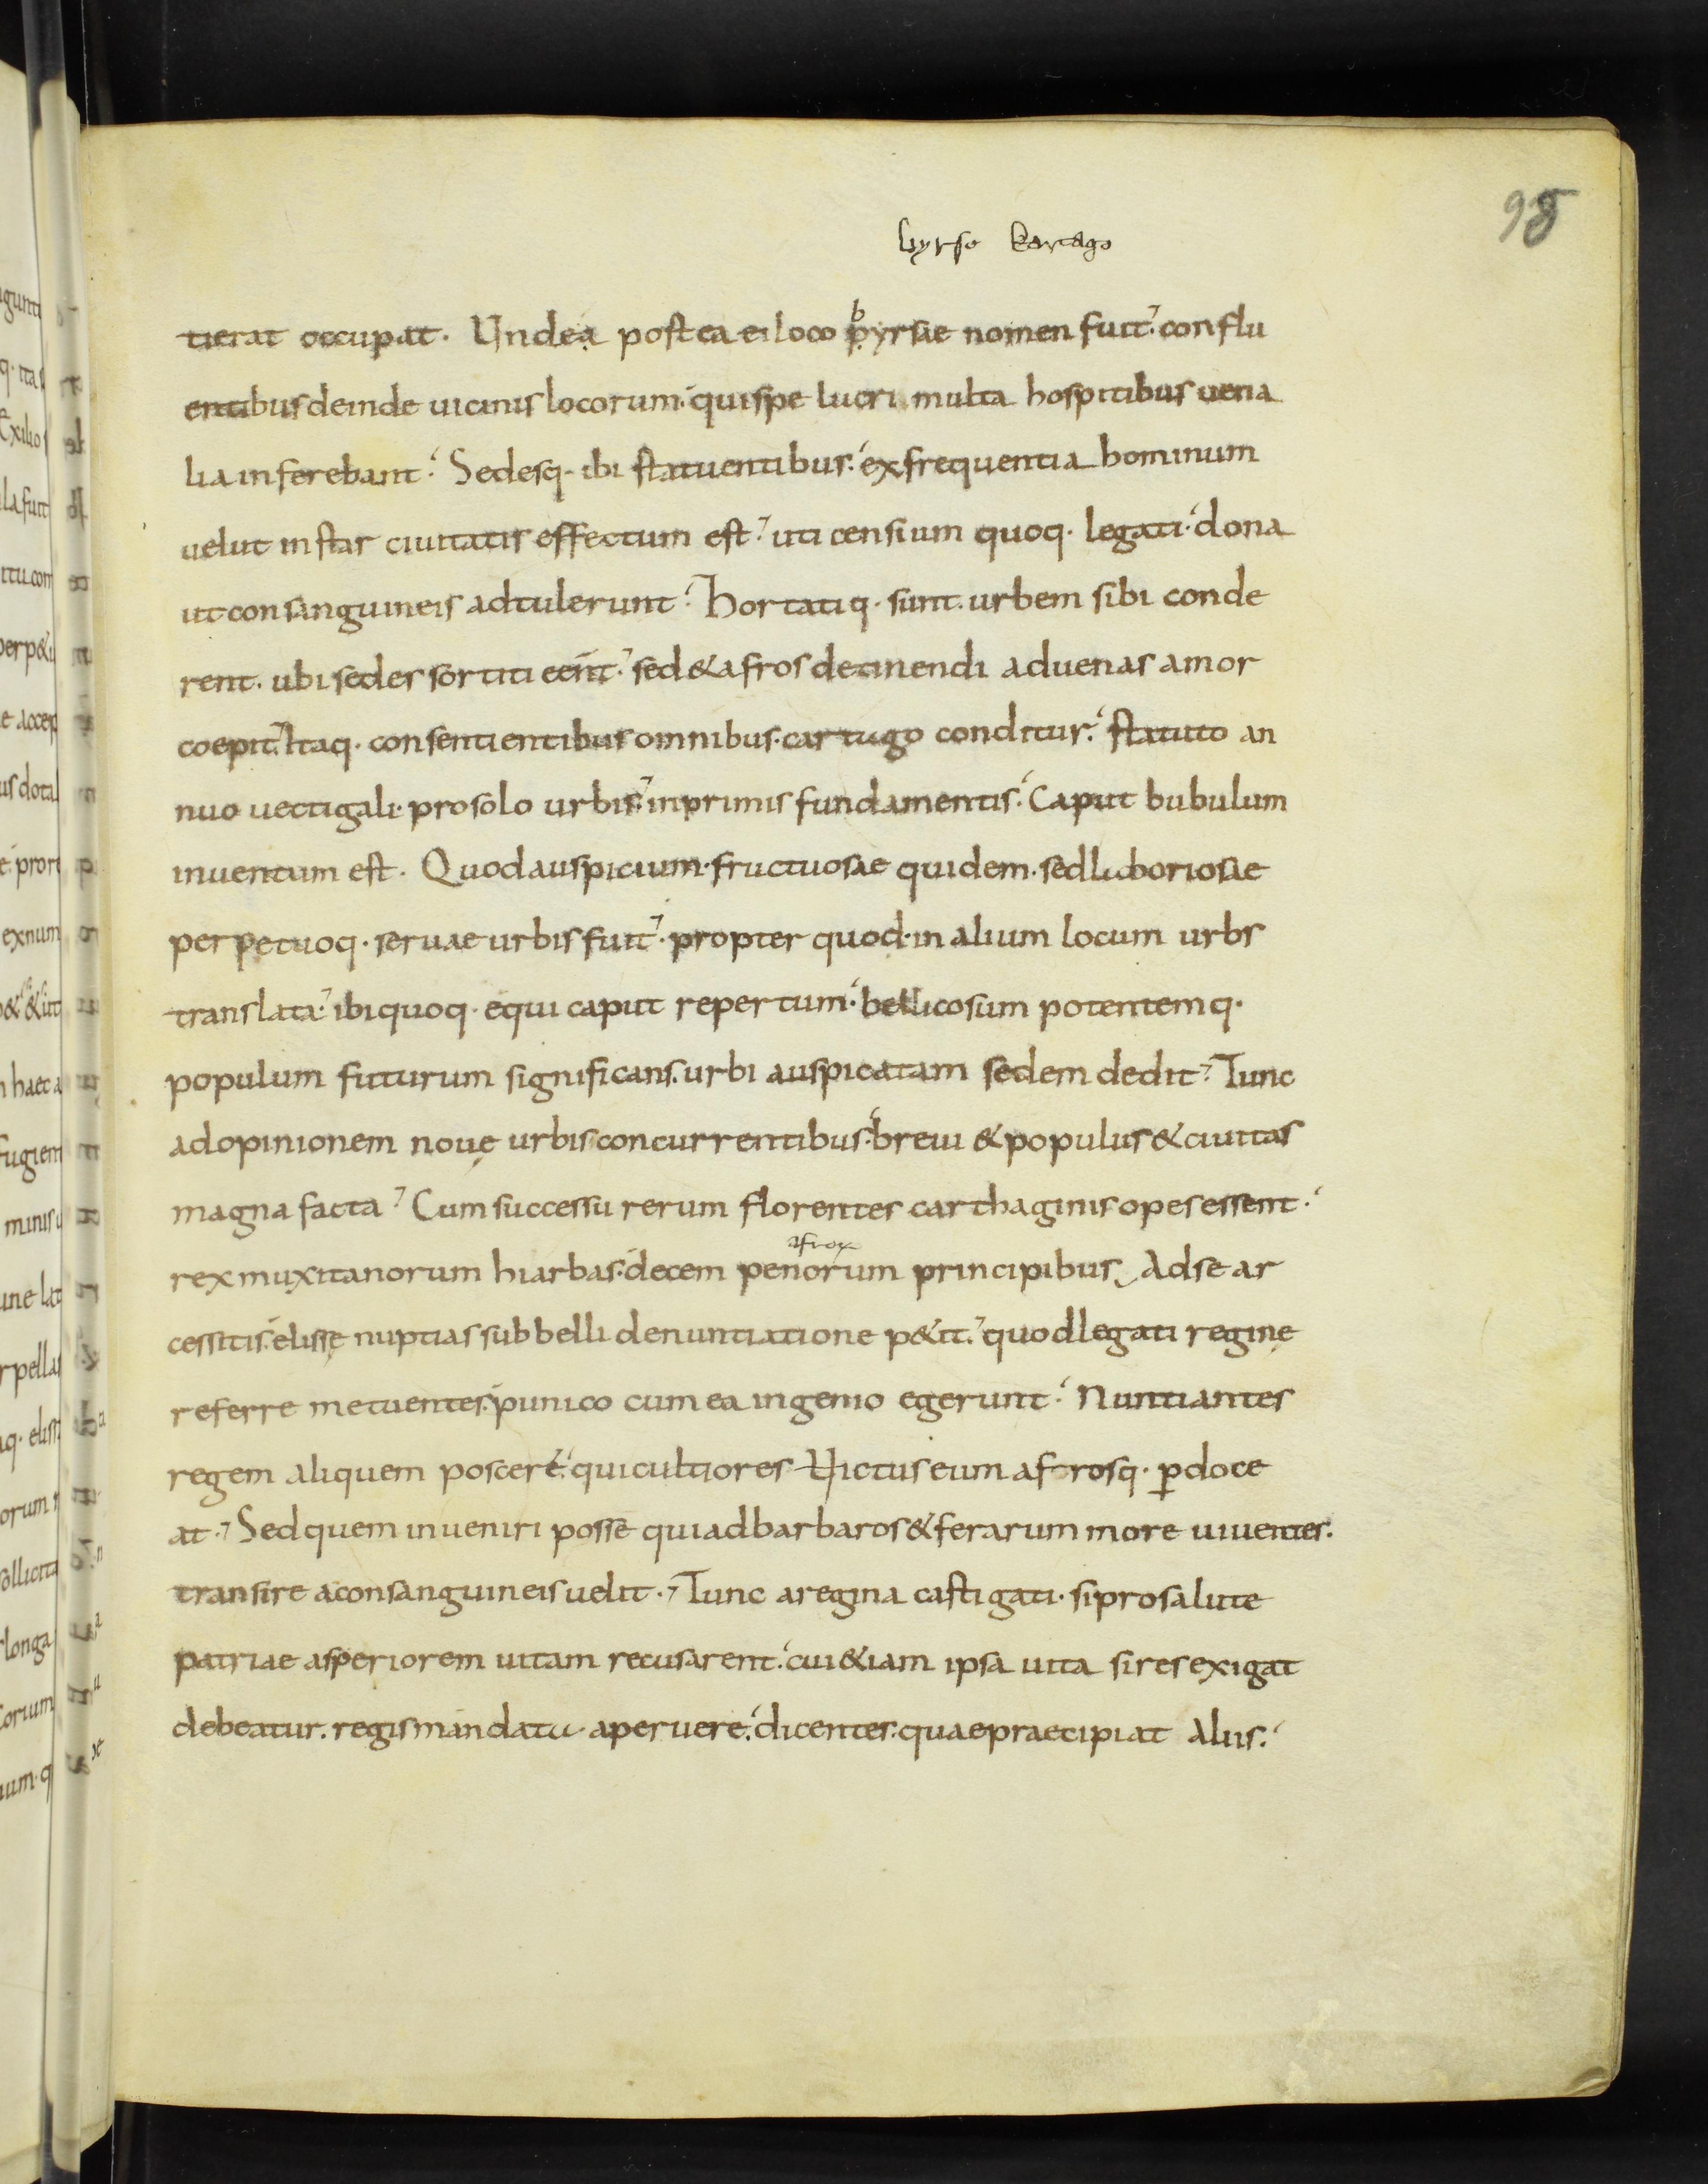 98
byrse kartago
tierat occupat. Undea postea ei loco pyrsae nomen fuit. conflu
b
entibus deinde uicinis locorum. qui spe lucri multa hospitibus uena
lia inferebant. Sedesq. ibi statuentibus. ex frequentia hominum
uelut instar ciuitatis effectum est. uticensium quoq. legati. dona
ut consanguineis adtulerunt. hortatiq. sunt. urbem sibi conde
rent. ubi sedes sortiti eēnt. sed & afros detinendi aduenas amor
coepit. Itaq. consentientibus omnibus. cartago conditur. statuto an
nuo uectigali. pro solo urbis. inprimis fundamentis. Caput bubulum
inuentum est. Quod auspicium. fructuosae quidem. sed laboriosae
perpetuoq. seruae urbis fuit. propter quod. in alium locum urbs
translata. ibi quoq. equi caput repertum. bellicosum potentemq.
populum futurum significans. urbi auspicatam sedem dedit. Tunc
ad opinionem nouę urbis concurrentibus. breui & populus & ciuitas
magna facta. Cum successu rerum florentes carthaginis opes essent.
rex muxitanorum hiarbas. decem penorum principibus Ad se ar
cessitis. elissę nuptias sub belli denuntiatione p&it. quod legati reginę
referre metuentes. punico cum ea ingenio egerunt. Nuntiantes
regem aliquem poscere. qui cultiores Uictus eum afrosq. ꝑdoce
at. Sed quem inueniri posse qui ad barbaros & ferarum more uiuentes.
transire a consanguineis uelit. Tunc a regina castigati. si pro salute
patriae asperiorem uitam recusarent. cui &iam ipsa uita si res exigat
debeatur. regis mandata. aperuere. dicentes. quae praecipiat Aliis.